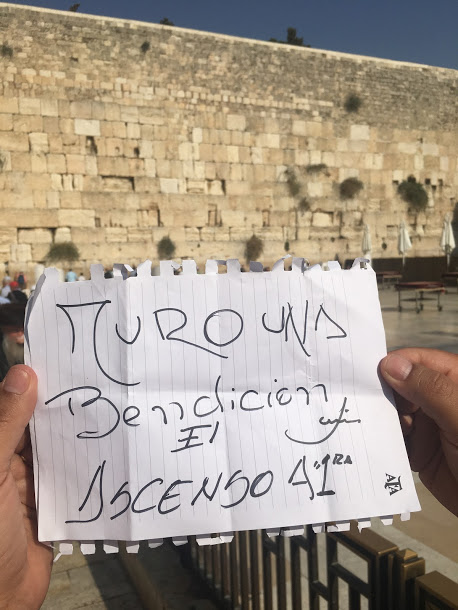 MURO UNA
Bendicion
El
ASCENSO A"1RA